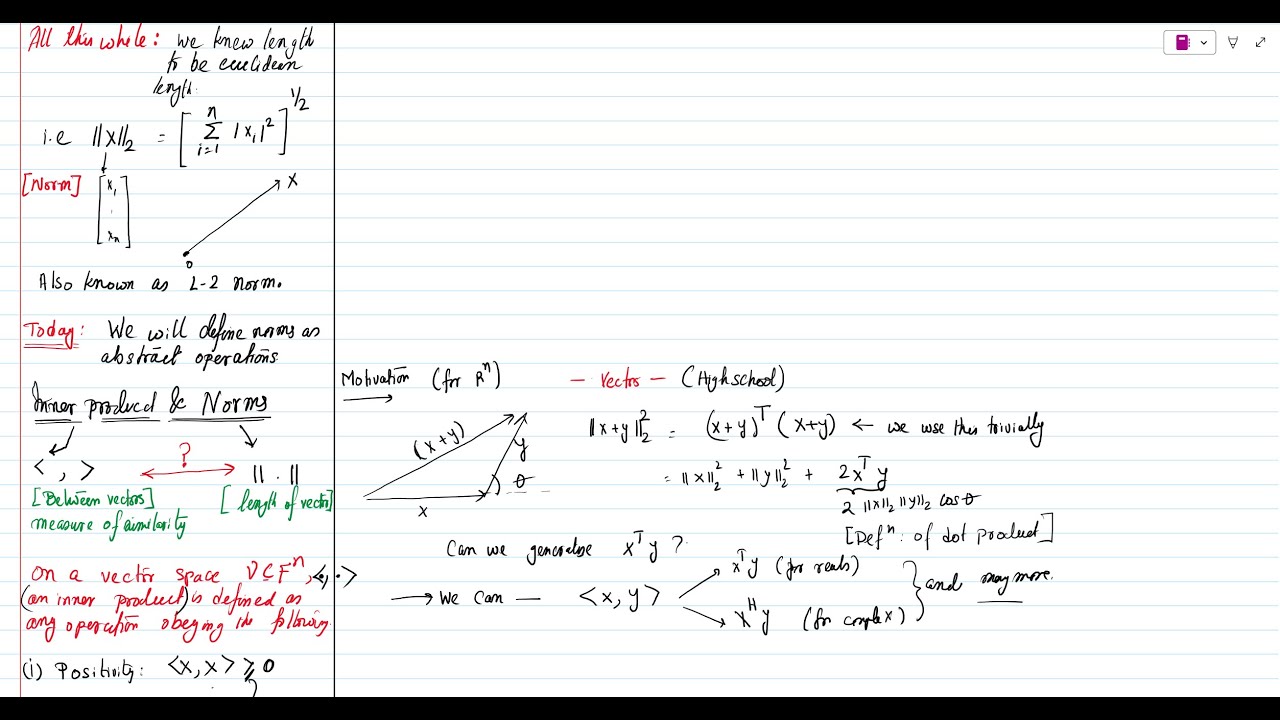 All this whole: we knew length
to be euclidean
length.
i.e ||x||₂ = [ Σ_{i=1}^{n} |x_i|² ]^{1/2}
[Norm] [ x₁ . xₙ ]
x
0
Also known as L-2 norm.
Today: We will define norms as
abstract operations
Inner product & Norms
< , > ? || . ||
[Between vectors] [length of vector]
measure of similarity
On a vector space V ⊂ Fⁿ, <·,·>
(an inner product) is defined as
any operation obeying the following
(i) Positivity: <x, x> ≥ 0
Motivation (for Rⁿ) — Vector — (High school)
(x+y)
y
θ
x
||x+y||₂² = (x+y)ᵀ (x+y) ← we use this trivially
= ||x||₂² + ||y||₂² + 2xᵀy
2 ||x||₂ ||y||₂ cos θ
[Defⁿ. of dot product]
Can we generalise xᵀy ?
→ We can — <x, y>
xᵀy (for reals)
xᴴy (for complex)
} and many more.